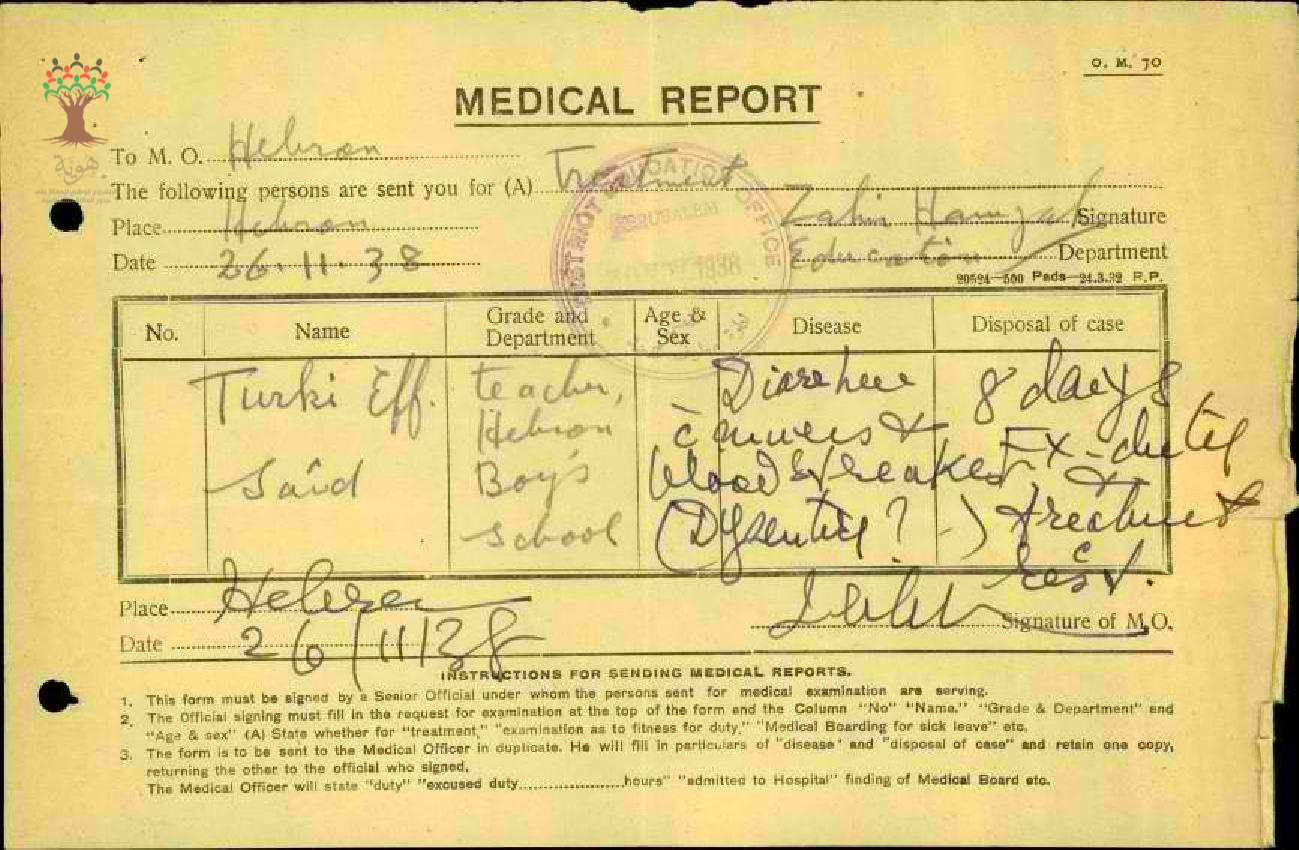 O. M. 70
MEDICAL REPORT
هوية
To M. O. Hebron
The following persons are sent you for (A) Treatment
Place Hebron
Signature
Date 26.11.38
Education Department
20524—500 Pads—24.3.32 P.P.
DISTRICT EDUCATION OFFICE
JERUSALEM
1938
No. Name Grade and Department Age & Sex Disease Disposal of case
Turki Eff. teacher, Diarrhea 8 days
Hebron c̄ mucus & Ex-duty
Saîd Boy's blood streaked &
School (Dysentery? -) treatment
Place Hebron
Signature of M.O.
Date 26/11/38
INSTRUCTIONS FOR SENDING MEDICAL REPORTS.
1. This form must be signed by a Senior Official under whom the persons sent for medical examination are serving.
2. The Official signing must fill in the request for examination at the top of the form and the Column "No" "Name." "Grade & Department" and
"Age & sex" (A) State whether for "treatment," "examination as to fitness for duty," "Medical Boarding for sick leave" etc.
3. The form is to be sent to the Medical Officer in duplicate. He will fill in particulars of "disease" and "disposal of case" and retain one copy,
returning the other to the official who signed.
The Medical Officer will state "duty" "excused duty....................hours" "admitted to Hospital" finding of Medical Board etc.